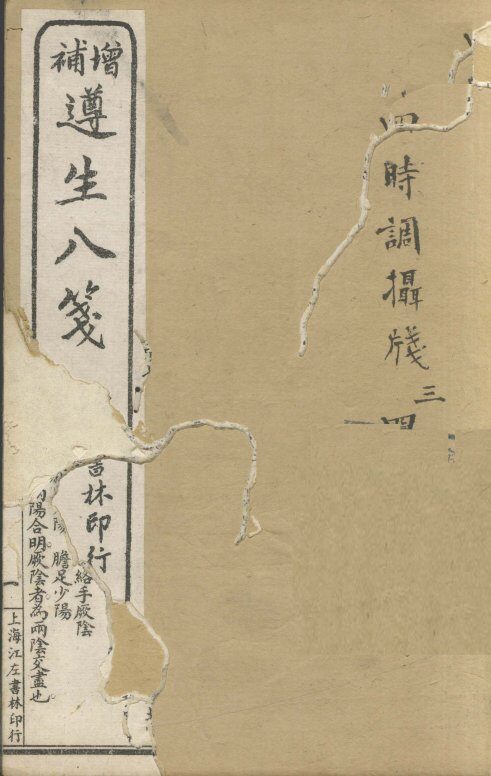 四時調攝牋
三
四
增補
遵生八箋
書林印行
絡手厥陰
膽足少陽
陽合明厥陰者為兩陰交盡也
上海江左書林印行